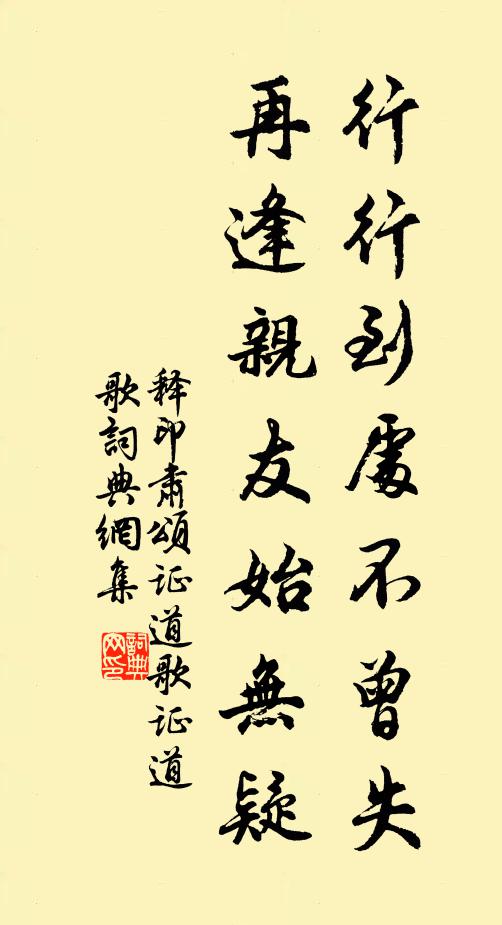 行行到處不曾失
再逢親友始無疑
释印肅頌证道歌证道
歌詞典網集
詞典
网印